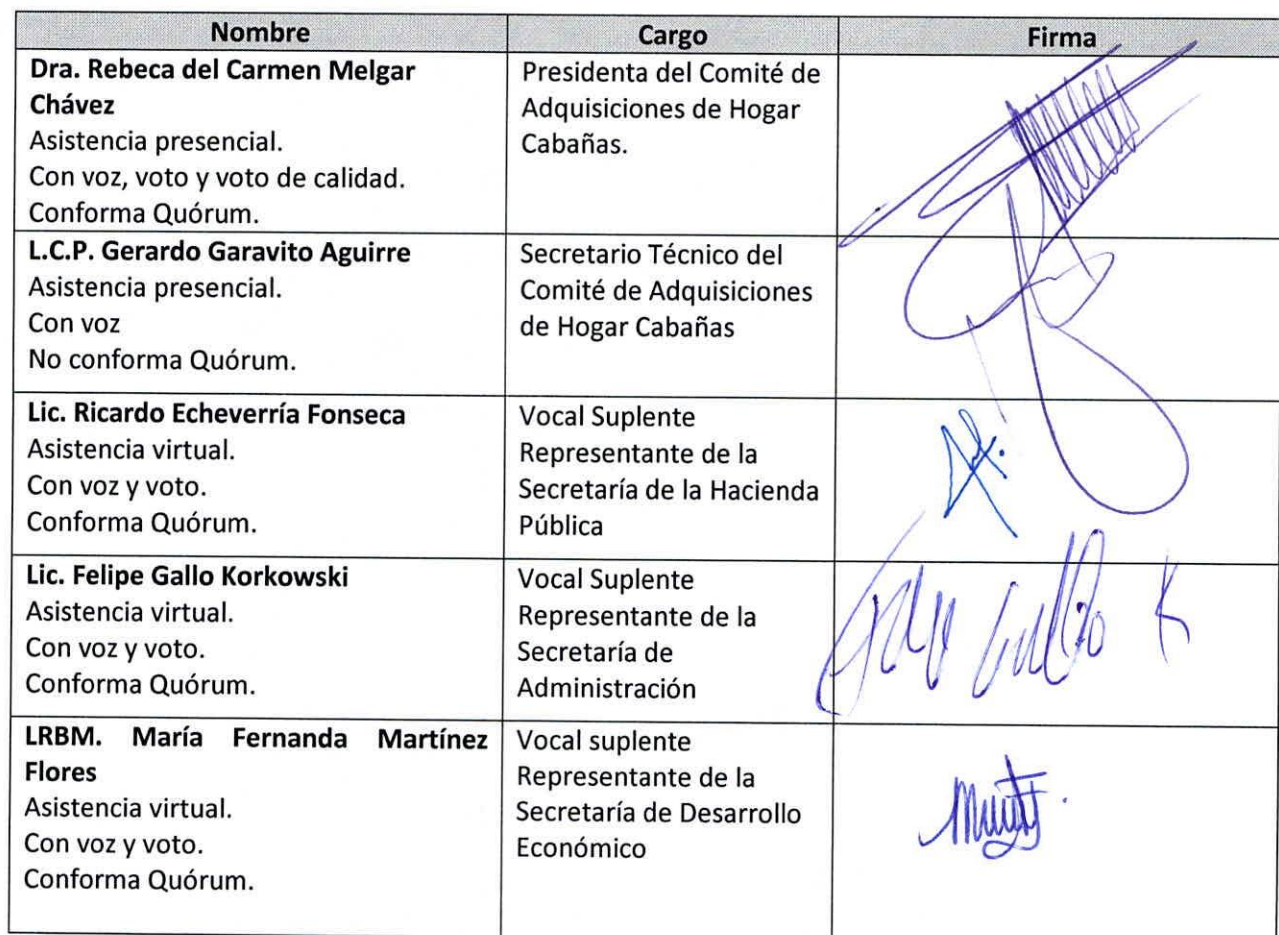 Nombre
Cargo
Firma
Dra. Rebeca del Carmen Melgar
Chávez
Asistencia presencial.
Con voz, voto y voto de calidad.
Conforma Quórum.
Presidenta del Comité de
Adquisiciones de Hogar
Cabañas.
L.C.P. Gerardo Garavito Aguirre
Asistencia presencial.
Con voz
No conforma Quórum.
Secretario Técnico del
Comité de Adquisiciones
de Hogar Cabañas
Lic. Ricardo Echeverría Fonseca
Asistencia virtual.
Con voz y voto.
Conforma Quórum.
Vocal Suplente
Representante de la
Secretaría de la Hacienda
Pública
Lic. Felipe Gallo Korkowski
Asistencia virtual.
Con voz y voto.
Conforma Quórum.
Vocal Suplente
Representante de la
Secretaría de
Administración
LRBM. María Fernanda Martínez
Flores
Asistencia virtual.
Con voz y voto.
Conforma Quórum.
Vocal suplente
Representante de la
Secretaría de Desarrollo
Económico